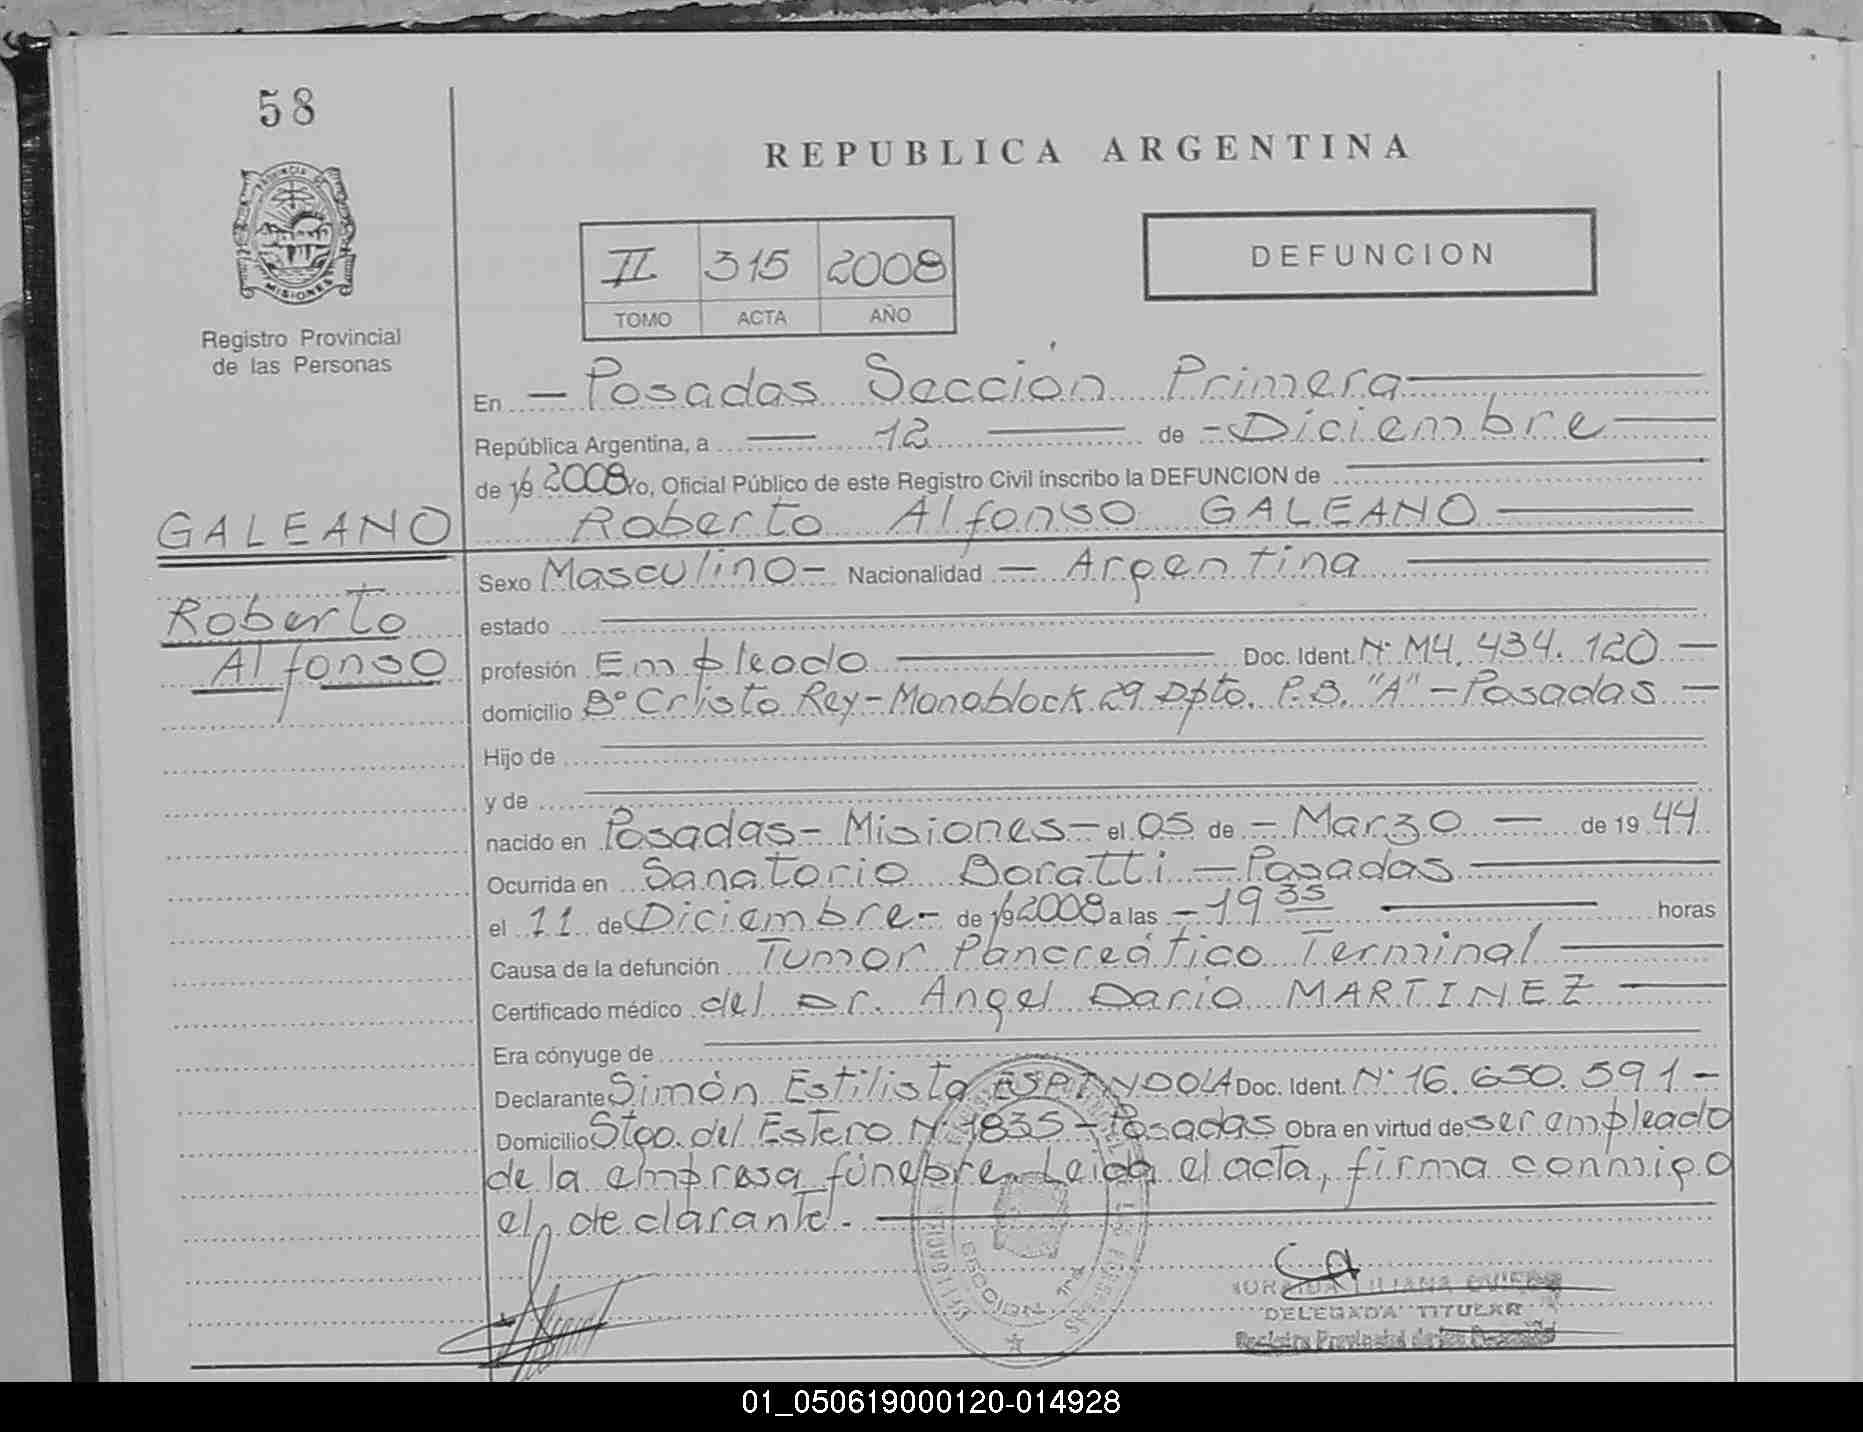 58
REPUBLICA ARGENTINA
PROVINCIA DE
MISIONES
Registro Provincial
de las Personas
II 315 2008
TOMO ACTA AÑO
DEFUNCION
En - Posadas Sección Primera
República Argentina, a 12 de - Diciembre
de 19 2008 Yo, Oficial Público de este Registro Civil inscribo la DEFUNCION de
GALEANO
Roberto Alfonso GALEANO
Roberto
Alfonso
Sexo Masculino - Nacionalidad - Argentina
estado
profesión Empleado Doc. Ident. Nº M4.434.120 -
domicilio Bº Cristo Rey - Monoblock 29 Dpto. P.B. "A" - Posadas -
Hijo de
y de
nacido en Posadas - Misiones - el 05 de - Marzo - de 19 44
Ocurrida en Sanatorio Boratti - Posadas
el 11 de Diciembre - de 19 2008 a las - 19 35 horas
Causa de la defunción Tumor Pancreático Terminal
Certificado médico del Dr. Angel Dario MARTINEZ
Era cónyuge de
Declarante Simón Estilisto ESPINDOLA Doc. Ident. Nº 16.650.591 -
Domicilio Stgo. del Estero Nº 1835 - Posadas Obra en virtud de ser empleado
de la empresa fúnebre. Leida el acta, firma conmigo
el declarante.
SECCION 1ra
LILIANA
DELEGADA TITULAR
Registro Provincial de las Personas
01_050619000120-014928